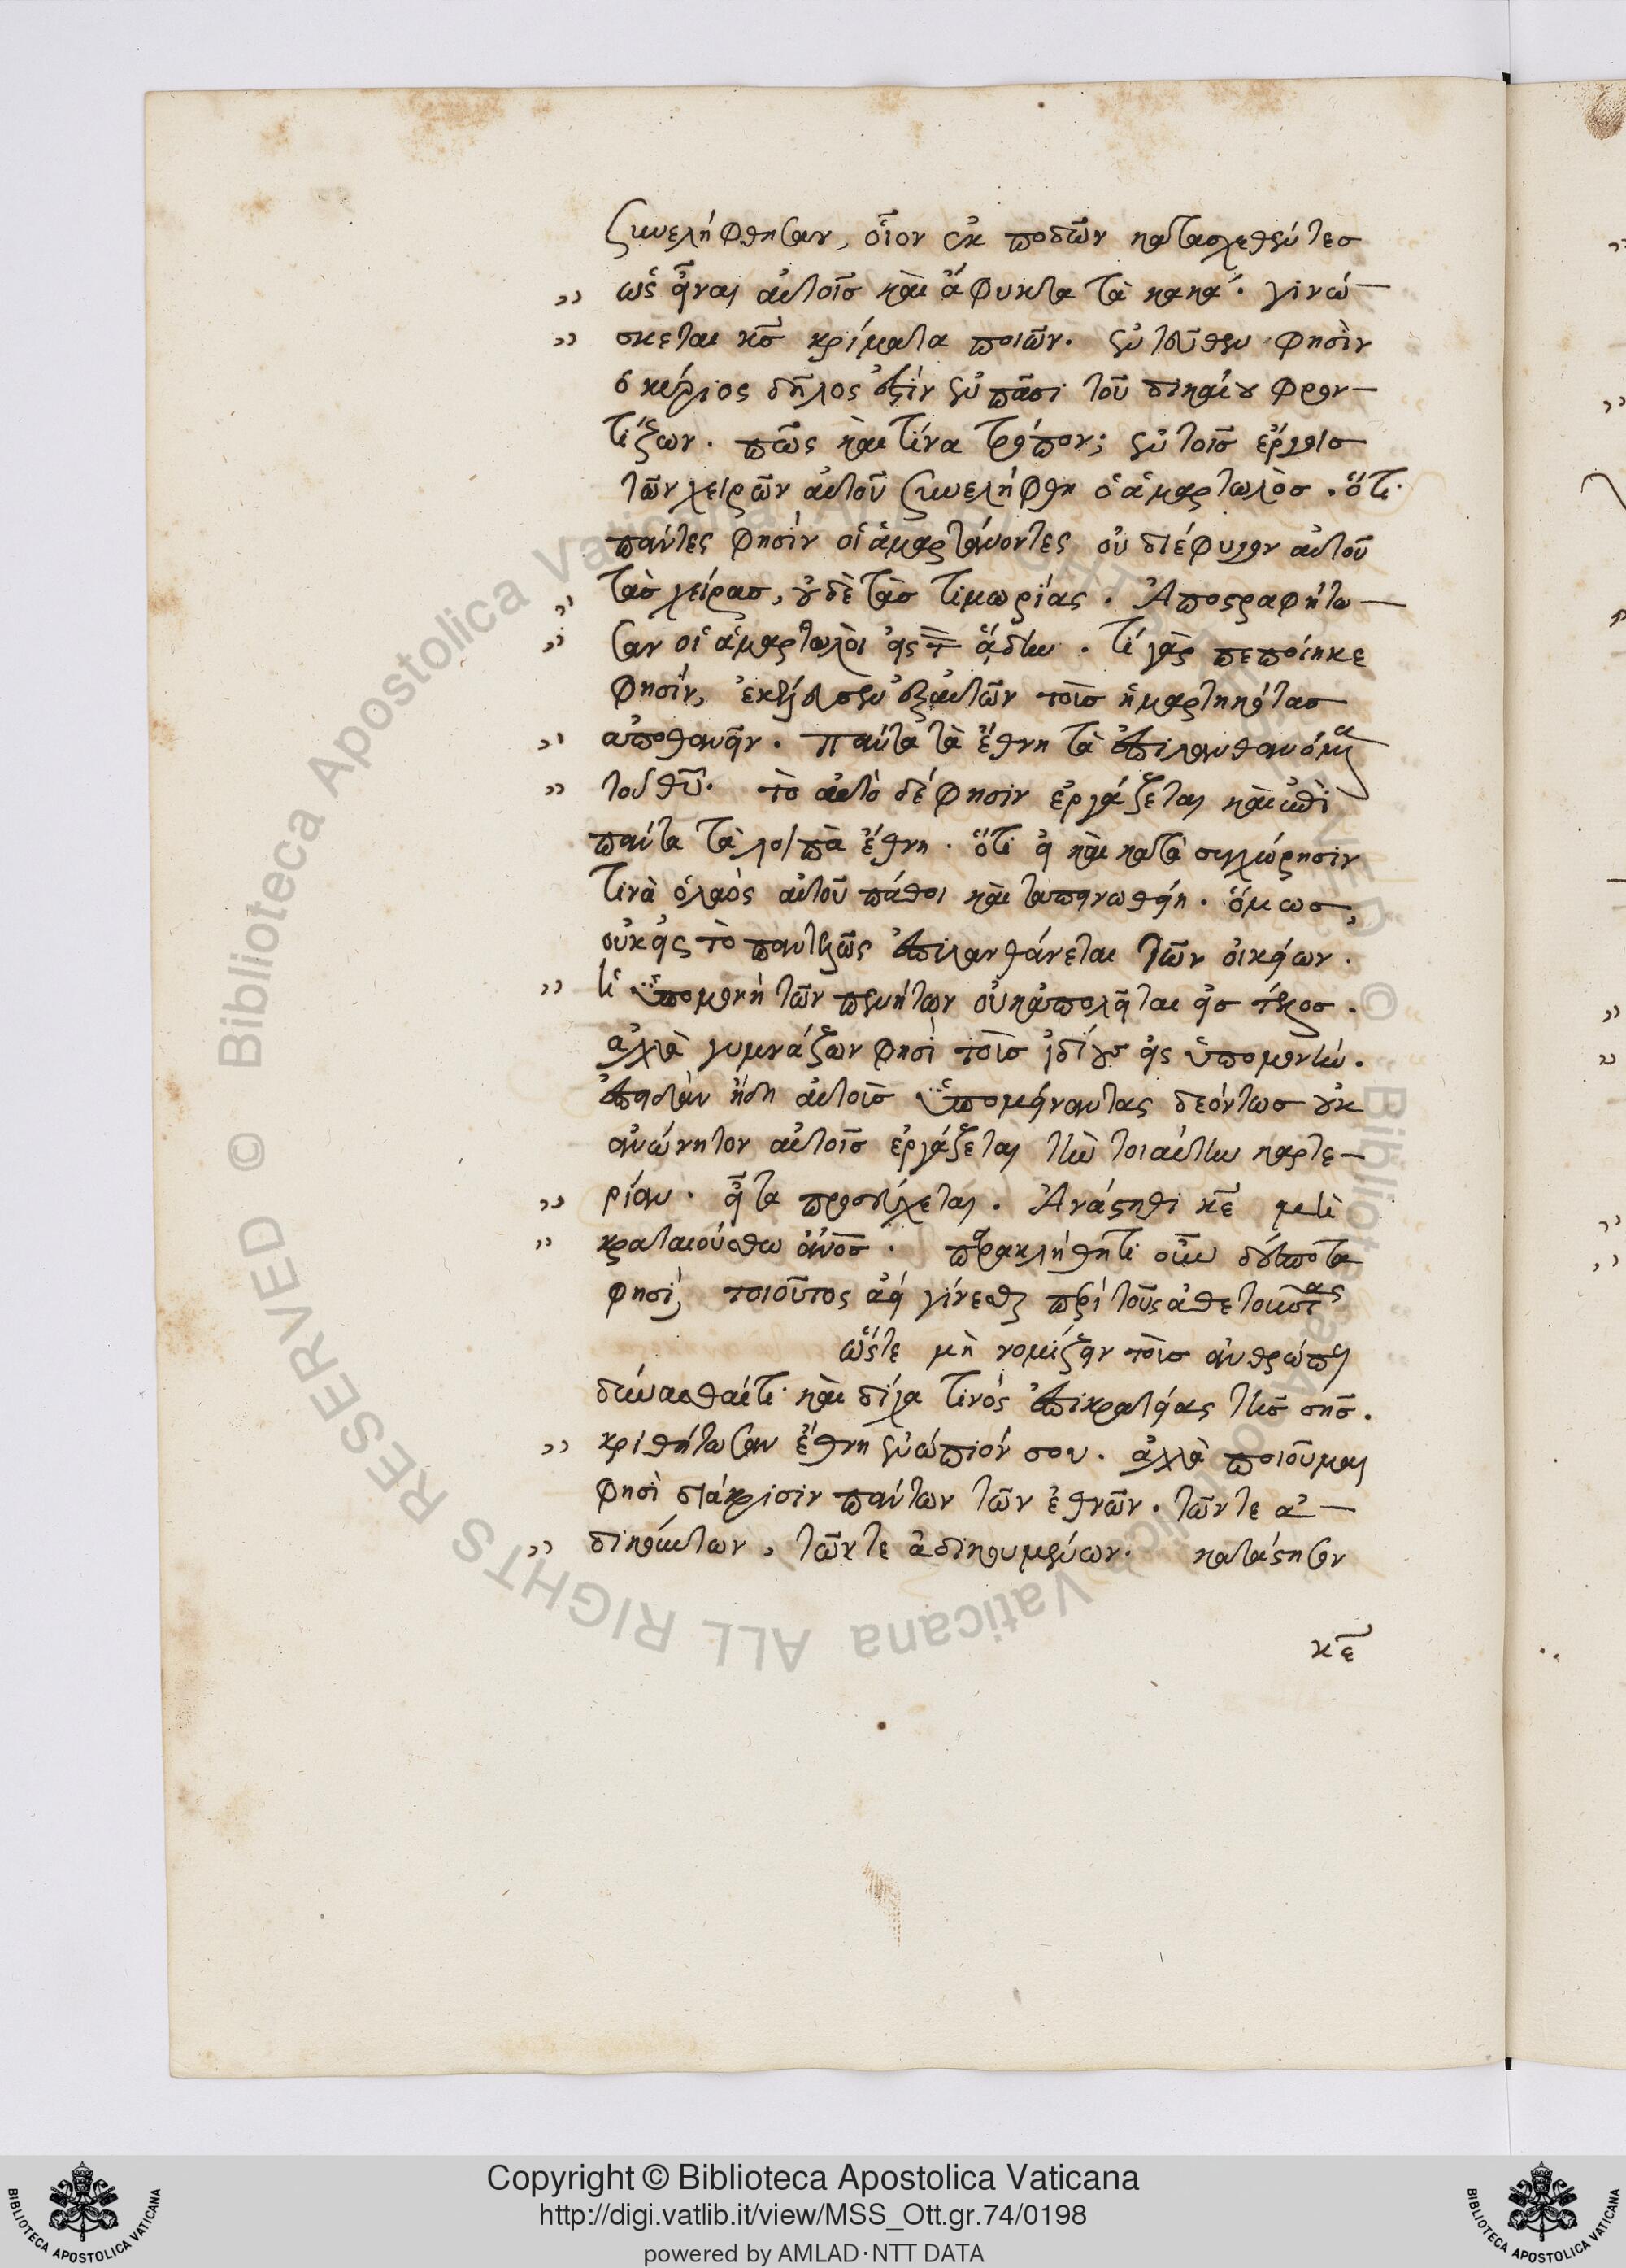 συνελήφθησαν, οἷον ἐκ ποδῶν κατασχεθέντες
ὡς εἶναι αὐτοῖς καὶ ἄφυκτα τὰ κακά. γινώ-
σκεται κ̅ς̅ κρίματα ποιῶν. ἐντεῦθεν φησὶν
ὁ κύριος δῆλος ἐστὶν ἐν πᾶσι τοῦ δικαίου φρον-
τίζων. πῶς καὶ τίνα τρόπον; ἐν τοῖς ἔργοις
τῶν χειρῶν αὐτοῦ συνελήφθη ὁ ἁμαρτωλὸς. ὅτι
πάντες φησὶν οἱ ἁμαρτάνοντες οὐ διέφυγον αὐτοῦ
τὰς χείρας, οὐδὲ τὰς τιμωρίας. Ἀποστραφήτω-
σαν οἱ ἁμαρτωλοὶ εἰς τ ᾅδην. τί γὰρ πεποίηκε
φησὶν, ἐξ αὐτῶν τοὺς ἡμαρτηκότας
ἀποθανεῖν. πάντα τὰ ἔθνη τὰ ἐπιλανθανόμενα
τοῦ θ̅υ̅. τὸ αὐτὸ δέ φησιν ἐργάζεται καὶ ἐπὶ
πάντα τὰ λοιπὰ ἔθνη. ὅτι εἰ καὶ κατὰ συγχώρησιν
τινὰ ὁ λαὸς αὐτοῦ πάθοι καὶ ταπεινωθείη. ὅμως,
οὐκ εἰς τὸ παντελῶς ἐπιλανθάνεται τῶν οἰκείων.
ἡ ὑπομονὴ τῶν πενήτων οὐκ ἀπολεῖται εἰς τέλος.
ἀλλὰ γυμνάζων φησὶ τοὺς ἰδίους εἰς ὑπομονὴν.
ἐπειδὰν ἤδη αὐτοὺς ὑπομείναντας δεόντως οὐκ
ἀνώνητον αὐτοῖς ἐργάζεται τὴν τοιαύτην καρτε-
ρίαν. εἶτα προσεύχεται. Ἀνάστηθι κ̅ε̅ μὴ
κραταιούσθω ἄν̅ο̅ς̅. παρακλήθητι οὖν δέσποτα
φησὶ, τοιοῦτος ἀεὶ γίνεσθαι περὶ τοὺς ἀθετοῦντας
ὥστε μὴ νομίζειν τοὺς ἀνθρώπους
δύνασθαί τι καὶ δίχα τινὸς ἐπικρατείας τῆς σῆς.
κριθήτωσαν ἔθνη ἐνώπιόν σου. ἀλλὰ ποιοῦμαι
φησὶ διάκρισιν πάντων τῶν ἐθνῶν. τῶν τε ἀ-
δικούντων, τῶν τε ἀδικουμένων. κατάστησον
κ̅ε̅
Copyright © Biblioteca Apostolica Vaticana
http://digi.vatlib.it/view/MSS_Ott.gr.74/0198
powered by AMLAD·NTT DATA